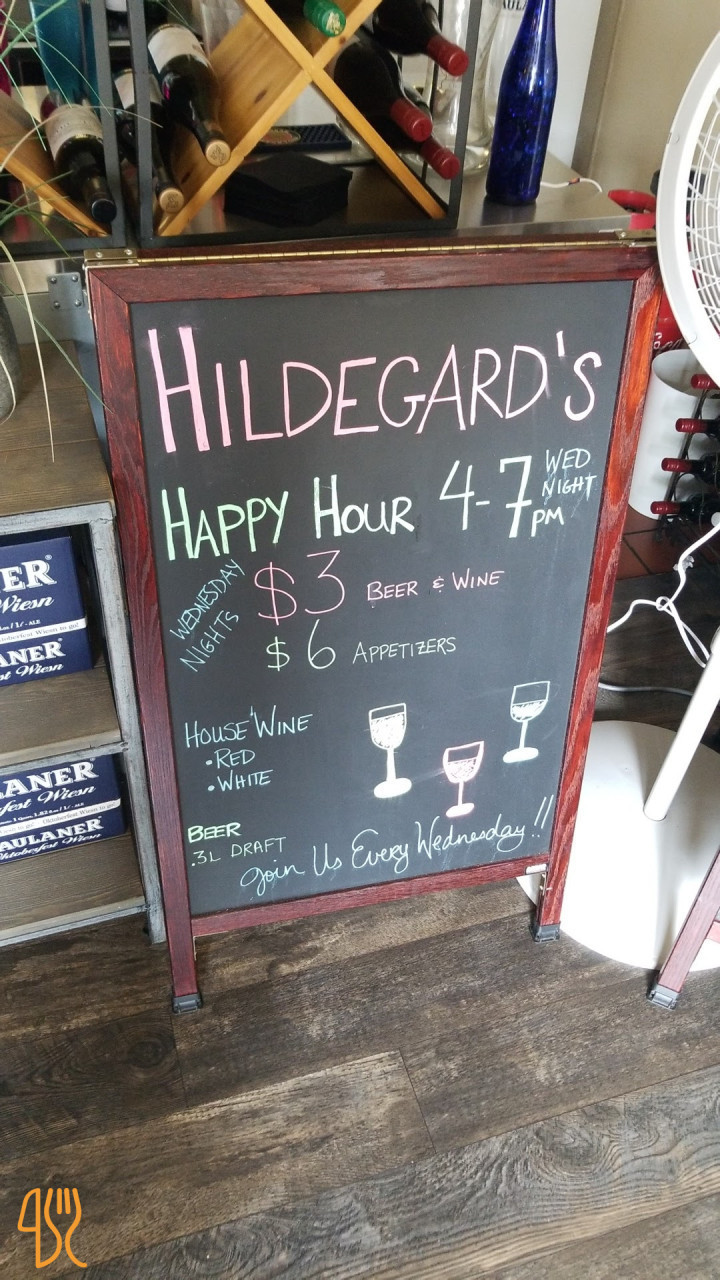 HILDEGARD'S
HAPPY HOUR 4-7 PM
WED
NIGHT
WEDNESDAY
NIGHTS
$3 BEER & WINE
$6 APPETIZERS
HOUSE WINE
•RED
•WHITE
BEER
.3L DRAFT
Join Us Every Wednesday!!
ER
Wiesn
ANER
Wiesn
LANER
fest Wiesn
PAULANER
Oktoberfest Wiesn